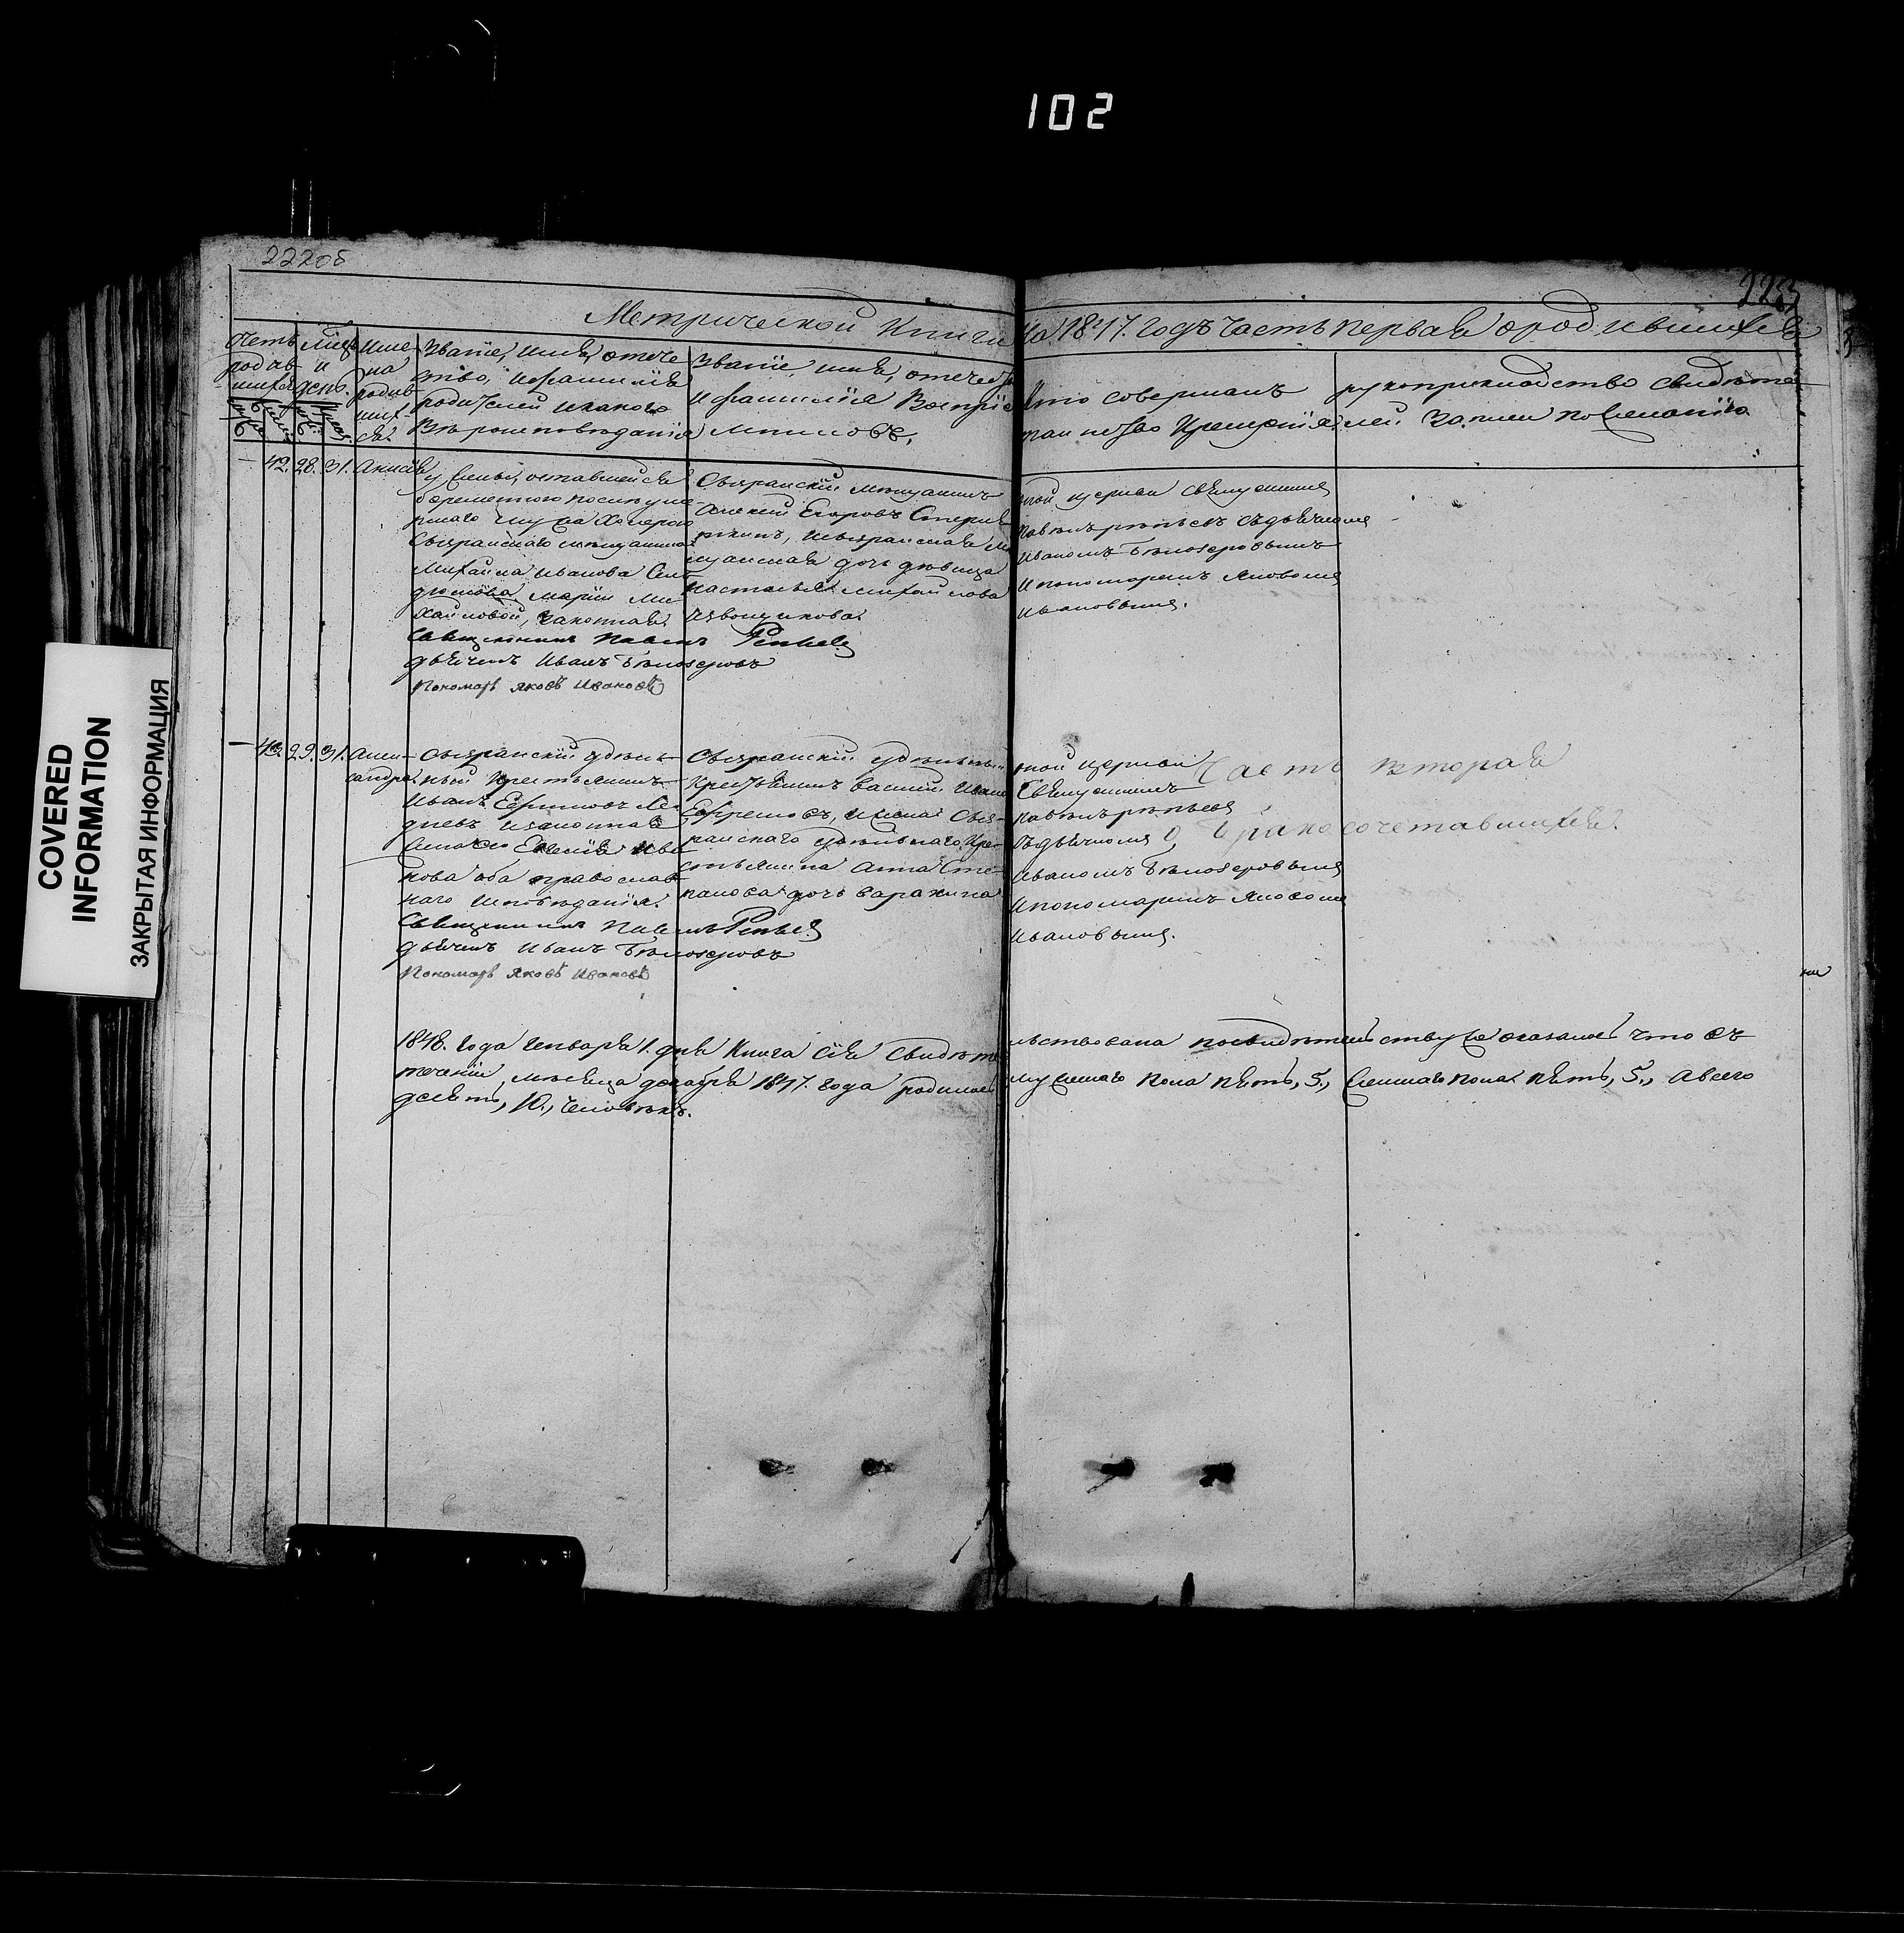 102
222об
223
Метрической Книги на 1847. годъ часть первая о родившихся
Счетъ родив-
шихся
Мѣсяцъ
и
день.
Име-
на
родив-
ших-
ся.
Званіе, имя, отече-
ство, и фамилія
родителей и какого
вѣроисповѣданія
Званіе, имя, отечество
и фамилія Воспріе-
мниковъ.
Кто совершалъ
таинство Крещенія
рукоприкладство свидѣте-
лей записи по желанію
42. 28. 31. Анисія
у жены, оставшейся
беременною послѣ уме-
ршаго мужа
Сызранскаго мѣщанина
Михаила Иванова
Маріи Ми-
хайловой, законная.
Сызранскій мѣщанинъ
Алексѣй Егоровъ
и сызранская мѣ-
щанская дочь дѣвица
Настасья Михайлова
Извощикова.
той церкви священникъ
Павелъ Рѣпьевъ съ дьячкомъ
Иваномъ Бѣлозеровымъ
и пономаремъ Яковомъ
Ивановымъ.
Священникъ Павелъ Репьевъ
дьячекъ Иванъ Бѣлозеровъ
Пономарь Яковъ Ивановъ
43. 29. 31. Алек-
сандра.
Сызранскій удѣль-
ный крестьянинъ
Иванъ Ефимовъ
и законная
жена его Евгенія Ива-
нова оба православ-
наго исповѣданія.
Сызранскій удѣльный
крестьянинъ Василій Ивановъ
Ефремовъ, и жена Сыз-
ранскаго удѣльнаго кре-
стьянина Анна Сте-
панова дочь Варахина
той церкви
Священникъ
Павелъ Рѣпьевъ
съ дьячкомъ
Иваномъ Бѣлозеровымъ
и пономаремъ Яковомъ
Ивановымъ.
Часть вторая
О бракосочетавшихся.
Священникъ Павелъ Репьевъ
дьячекъ Иванъ Бѣлозеровъ
Пономарь Яковъ Ивановъ
1848. года Генваря 1. дня Книга сія свидѣтельствована по свидѣтельству же оказалось что въ
теченіи мѣсяца декабря 1847. года родилось мужескаго пола пять, 5., женскаго пола пять, 5., а всего
десять, 10., человѣкъ.
COVERED
INFORMATION
ЗАКРЫТАЯ ИНФОРМАЦИЯ